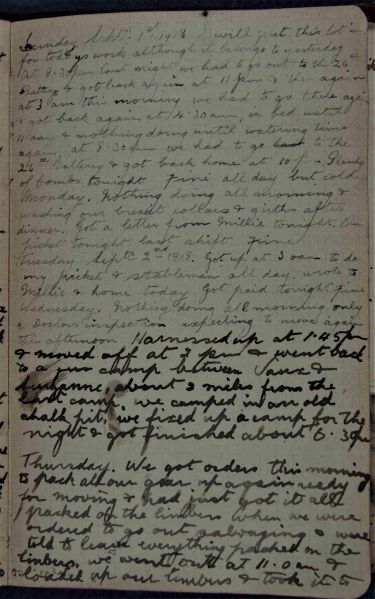 Sunday Sept. 1st 1918 I will put this lot in
for today's work, although it belongs to yesterday
At 8.30 pm last night we had to go out to the 26th
Battery & got back again at 11 pm & then again
at 3 am this morning we had to go there again
& got back again at 4.30 am, in bed, until
11 am & nothing doing until watering time
again at 8.30 pm we had to go to the
26th Battery & got back home at 10 p - Plenty
of bombs tonight Fine all day but cold
Monday. Nothing doing all morning &
washing our breast collars & girths after
dinner. Got a letter from Millie tonight. On
picket tonight last shift. Fine
Tuesday Sept. 2nd 1918. Got up at 3 am to do
my picket & stableman all day, wrote to
Millie & home today. Got paid tonight fine
Wednesday. Nothing doing all morning only
a Doctors inspection expecting to move again
this afternoon Harnessed up at 1.45 pm
& moved off at 3 pm & went back
to a camp between &
about 2 miles from the
last camp. we camped in an old
chalk pit, we fixed up a camp for the
night & got finished about 6.30 pm
Thursday. We got orders this morning
to pack all our gear up again ready
for moving & had just got it all
packed on the limbers when we were
ordered to go out salvaging & were
told to leave everything packed on the
limbers. we went out at 11.0 am &
loaded up our limbers & took it to